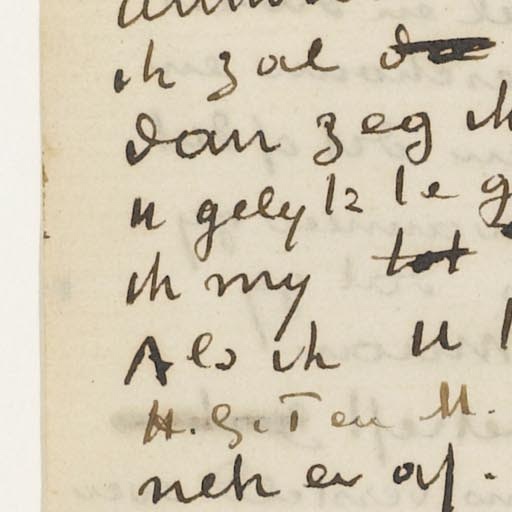 ik zal
dan zeg ik
u gelyk te g
ik my tot
Als ik u
H. G. T en M.
nek er af.